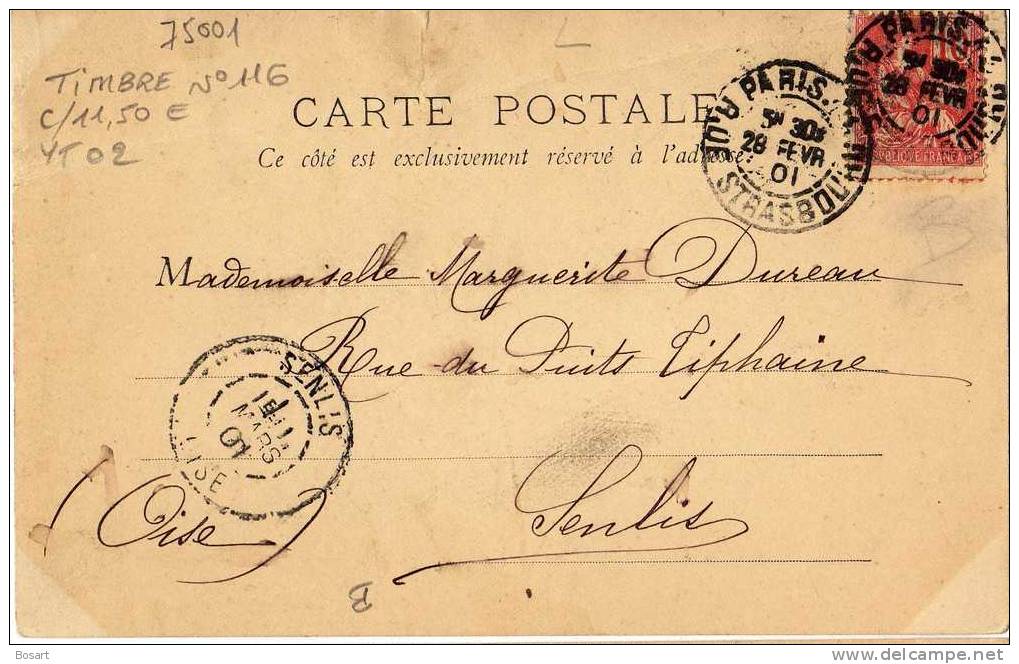 75001
TIMBRE N° 116
C/11,50 E
YT 02
CARTE POSTALE
Ce côté est exclusivement réservé à l'adresse
PARIS.
5E 30S
28 FEVR
01
R. DE STRASBOURG
PARIS.
28 FEVR
01
RÉPUBLIQUE FRANÇAISE
B
Mademoiselle Marguerite Dureau
Rue du Puits Tiphaine
Senlis
(Oise)
SENLIS
MARS
01
OISE
B
Bosart
delcampe.net